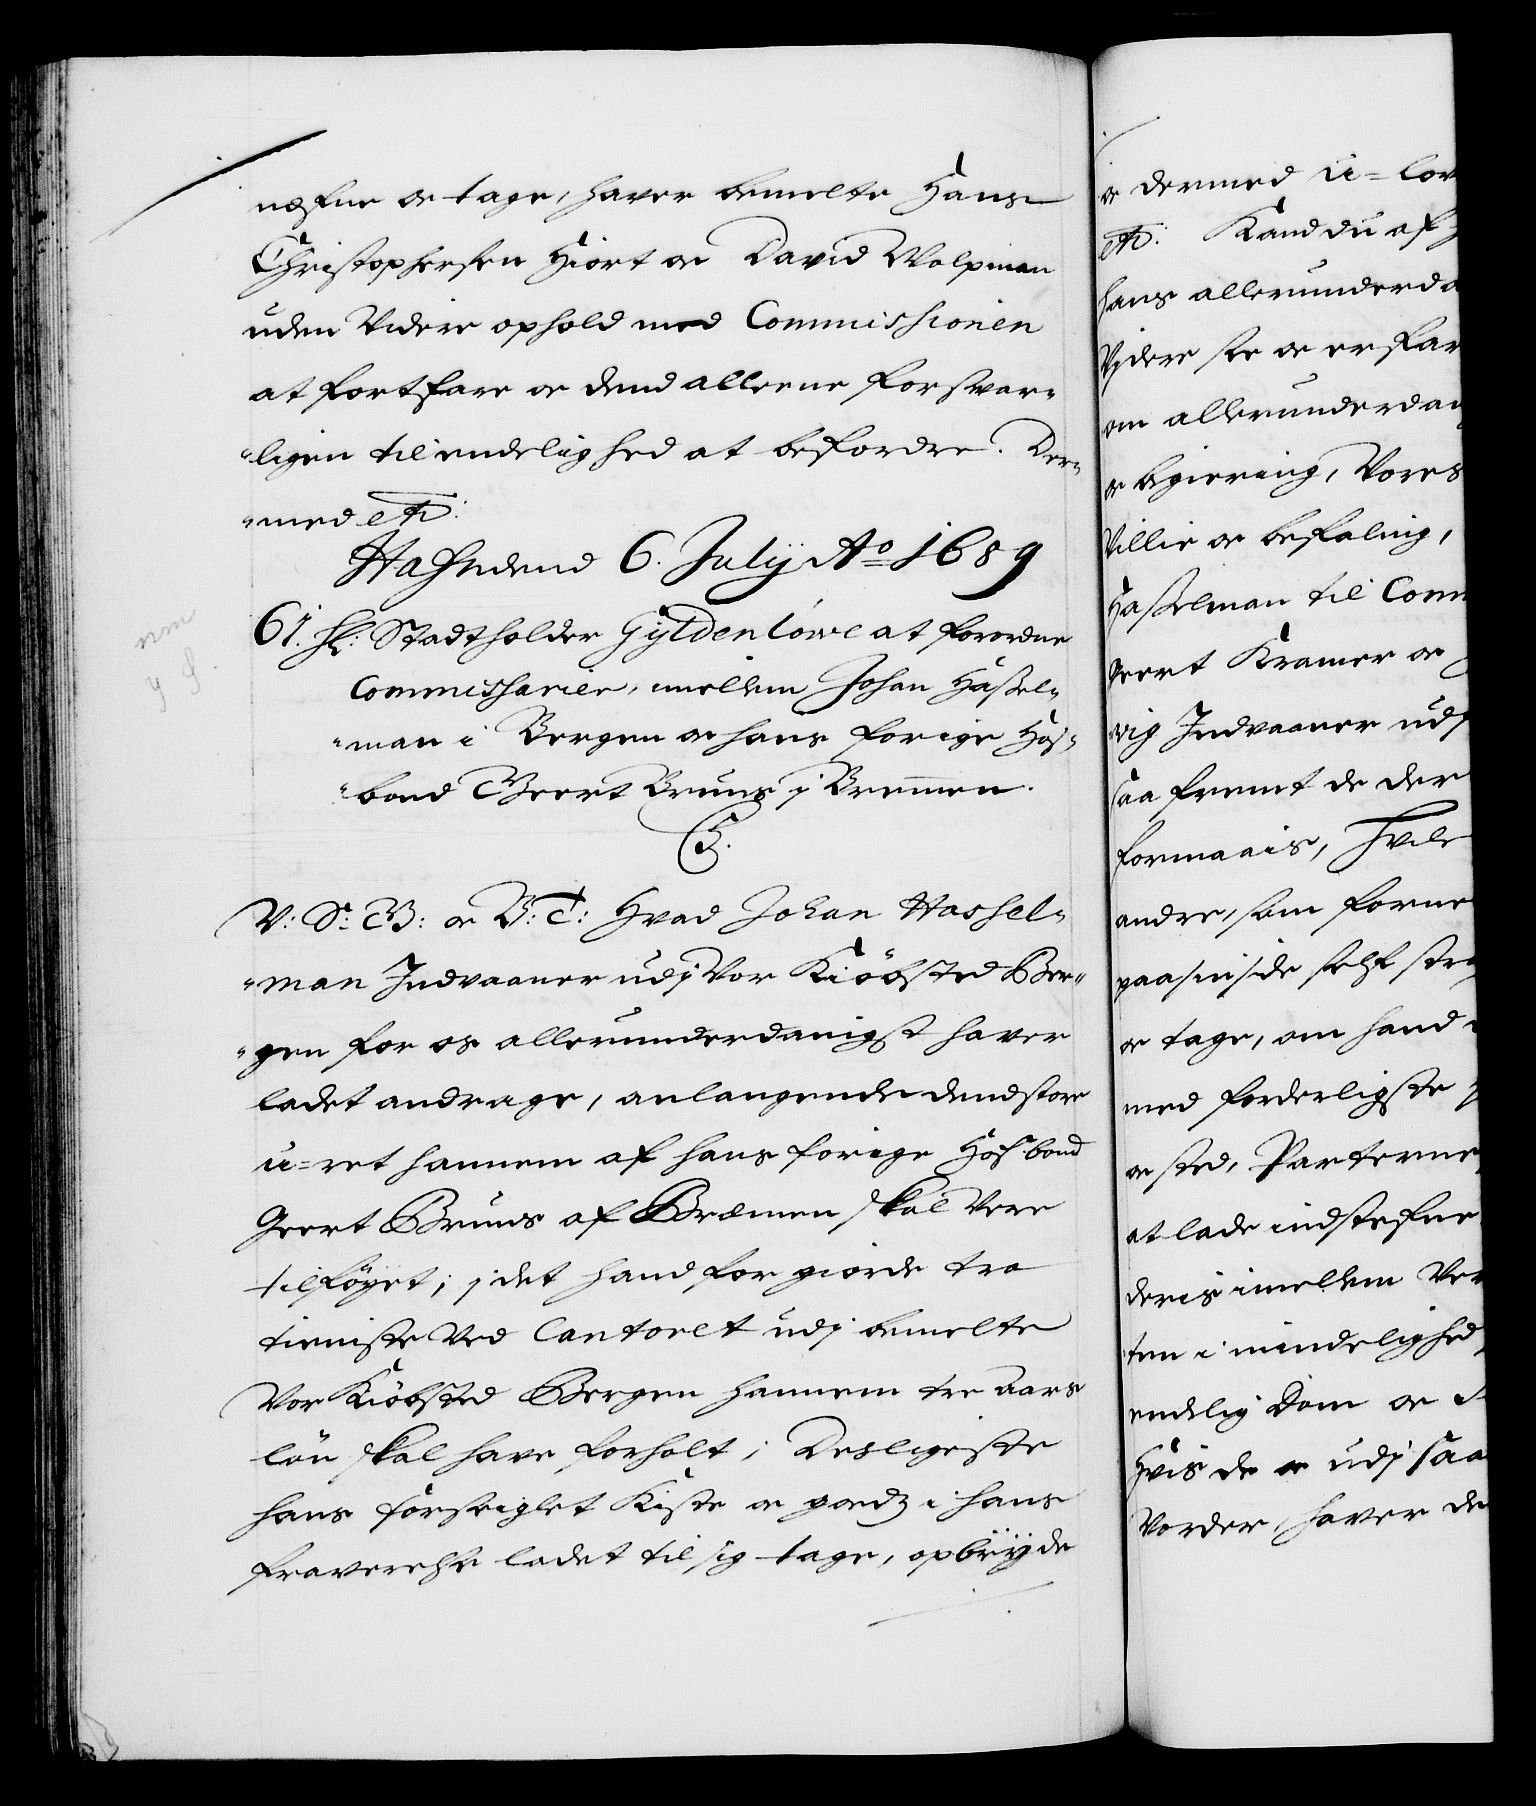 nefne oc tage, haver bemelte Hans
Christophersen Hiort oc David Wolpman
uden Videre ophold med Commissionen
at fortfare oc dend alleene forsvar-
"ligen til endelighed at befordre. Der-
"med etc:
Hafn dend 6. Julij Ao 1689
61. H: Stadtholder Gyldenlöwe at forordne
Commissarier, imellem Johan Hassel-
"man i Bergen oc hans forige Hos-
"bond Geert Bruns j Bremmen.
C5.
V: S: G: oc V: T: Hvad Johan Hassel-
"man Indvaaner udj Vor Kiöbsted Ber-
"gen for os allerunderdanigst haver
ladet andrage, anlangende dend store
u-ret hannem af hans forige Hosbond
Geert Bruns af Bremen skal Vere
tilföyet, j det hand for giorde tro
tieniste Ved Cantoret udj bemelte
Vor Kiöbsted Bergen hannem tre aars
lön skal have forholt; Desligeste
hans forseiglet Kiste oc godz i hans
fraverelse ladet til sig tage, opbryde
oc dermed u-lov
etc: Kand du af
hans allerunderda
Videre see oc erfar
om allerunderdan
oc begiering, Vores
Villie oc befaling,
Hasselman til Com
Geert Kramer oc
vig Indvaaner udj
saa fremt de der
formaais, hvile
andre, som forne
paa sin side self str
oc tage, om hand
med forderligste
oc sted, Parterne
at lade indstefne
deris imellem Ver
ten i mindelighed,
endelig Dom oc
Hvis de oc udj saa
Vorder, haver de